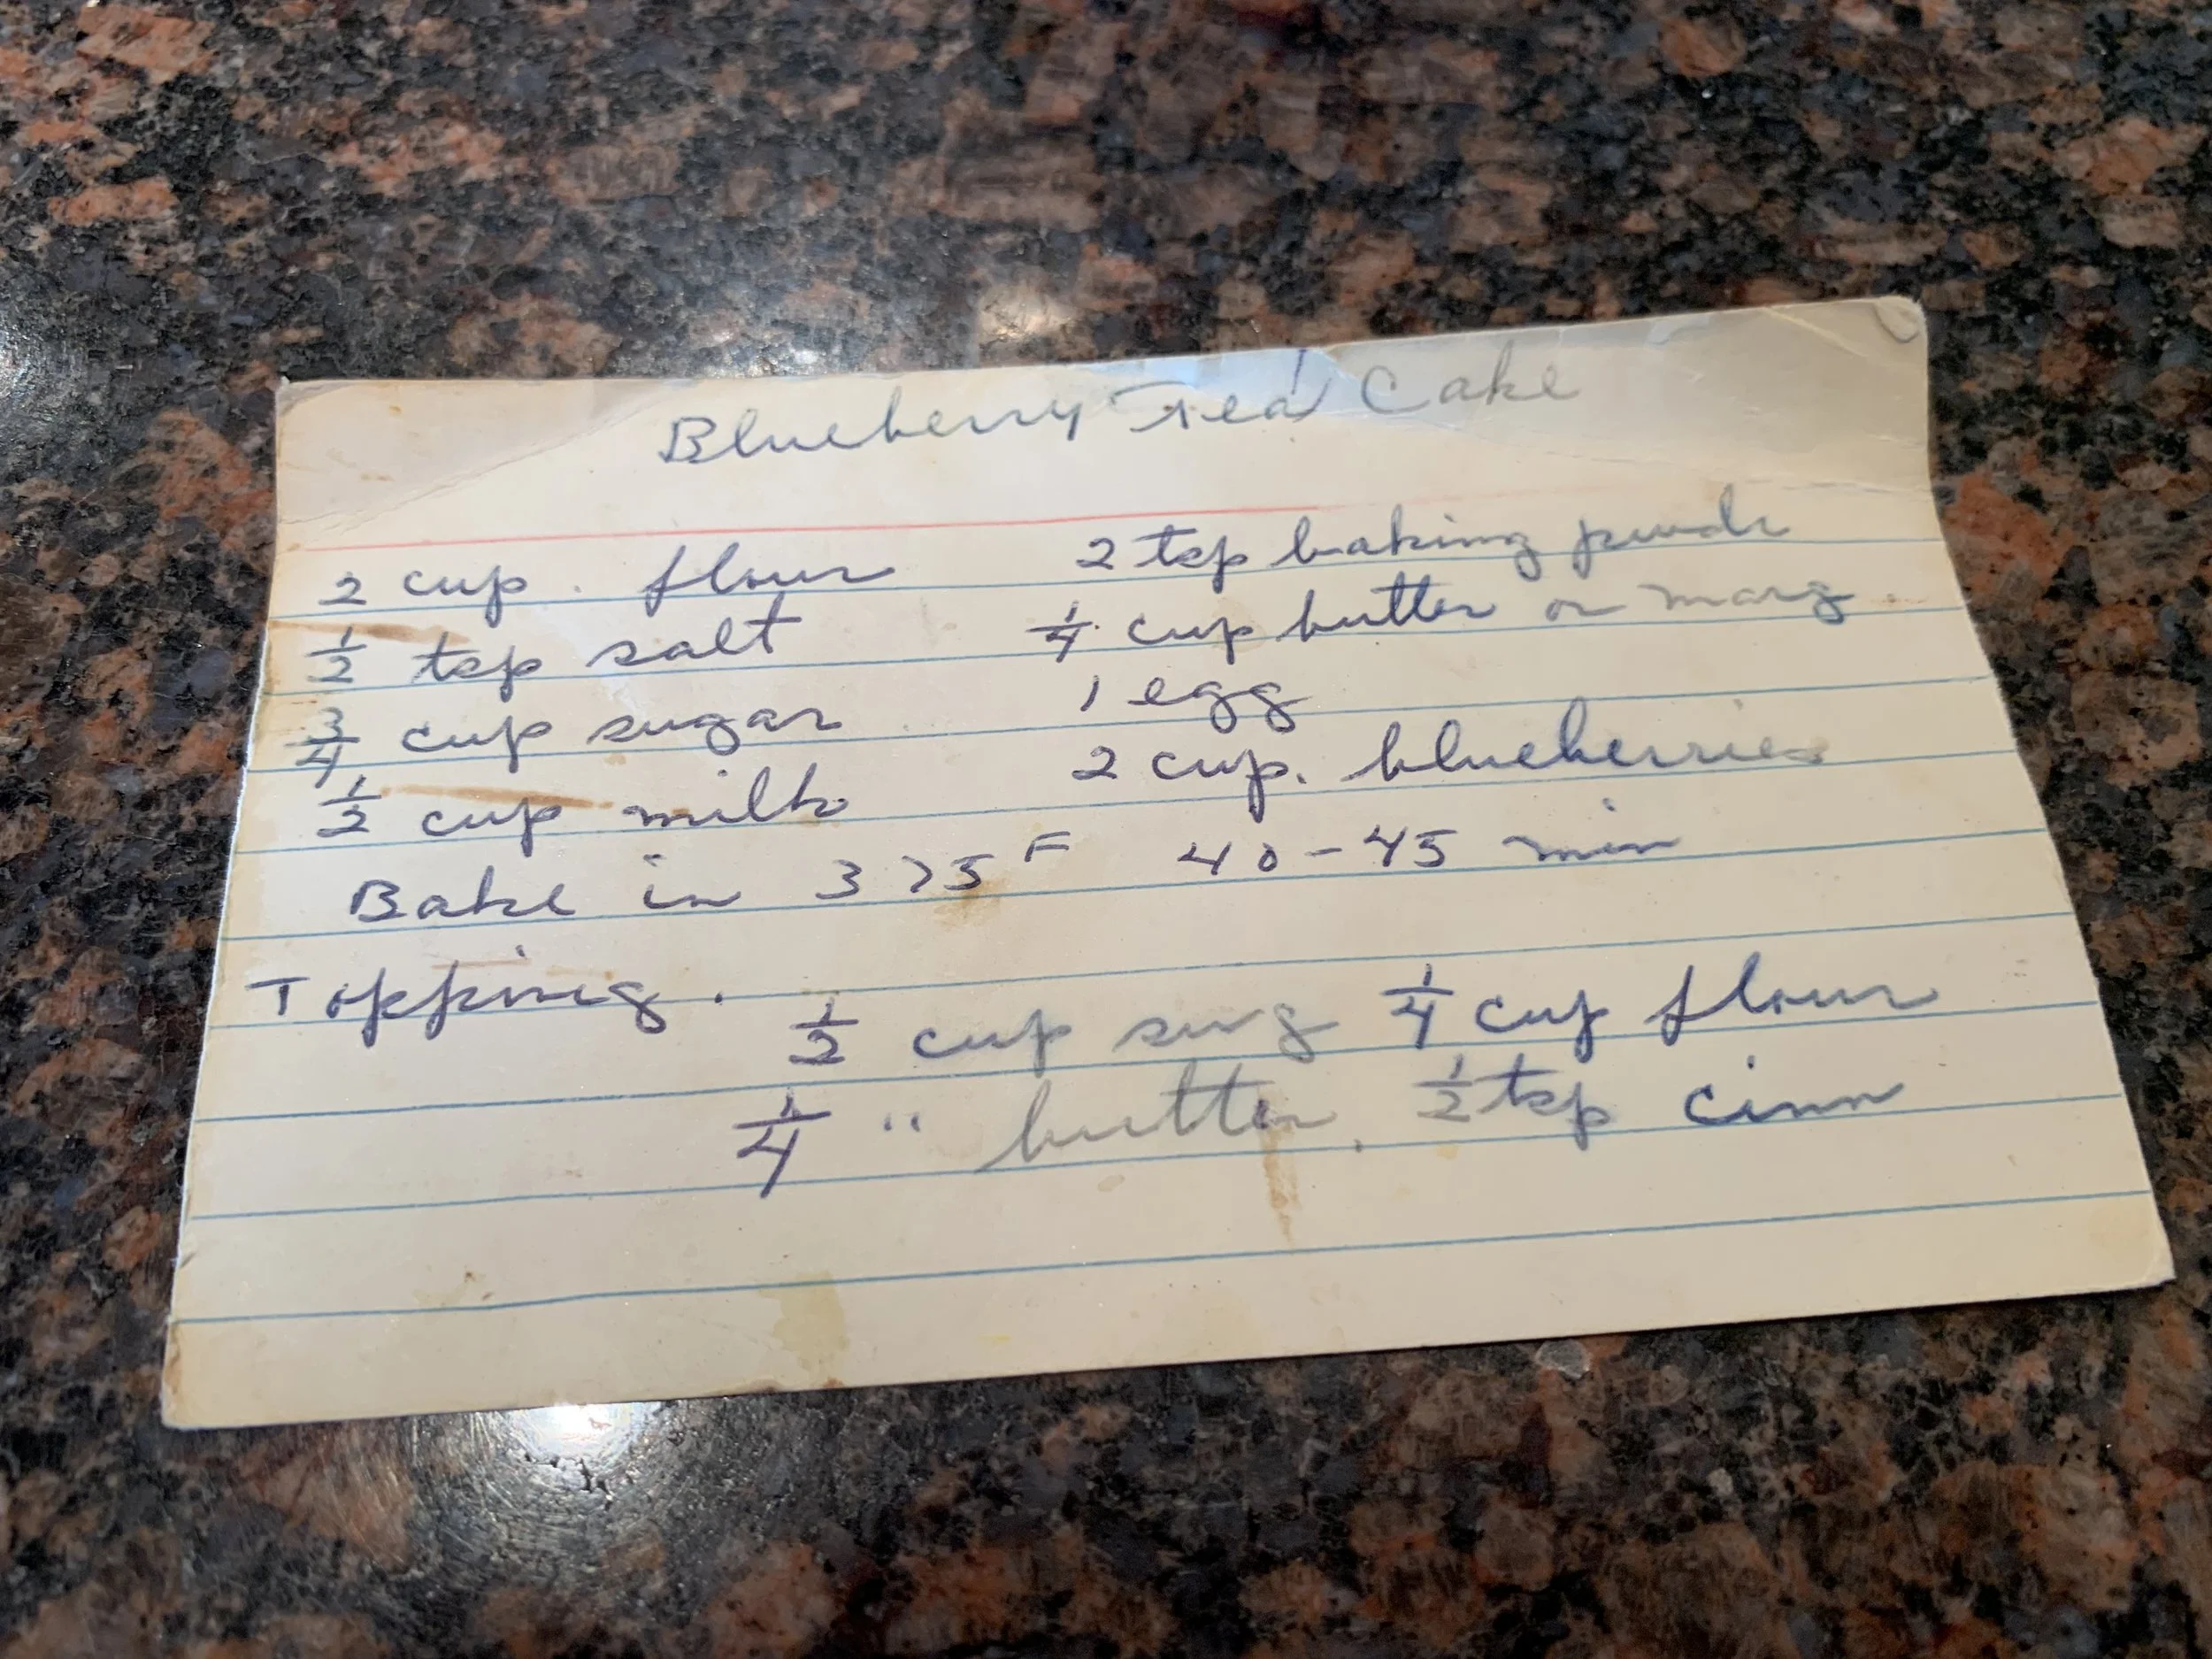 Blueberry Tea Cake
2 cup. flour 2 tsp baking powdr
1/2 tsp salt 1/4 cup butter or marg.
3/4 cup sugar 1 egg
1/2 cup milk 2 cup. blueberries
Bake in 375 F 40-45 min
Topping.
1/2 cup sug 1/4 cup flour
1/4 " butter, 1/2 tsp cinn